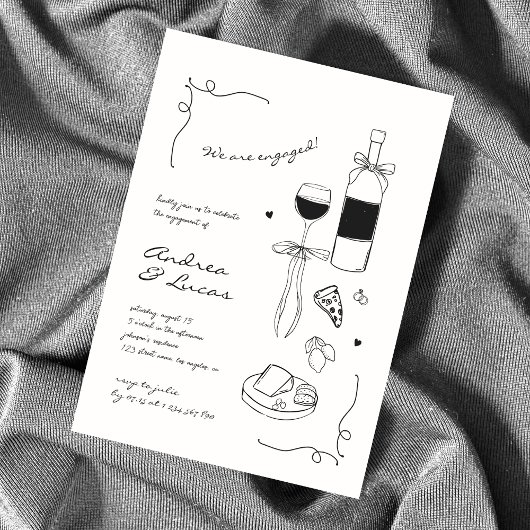 We are engaged!
kindly join us to celebrate
the engagement of
Andrea
& Lucas
saturday, august 15
5 o'clock in the afternoon
johnson's residence
123 street name, los angeles, ca
rsvp to julie
by 07.15 at 1 234 567 890